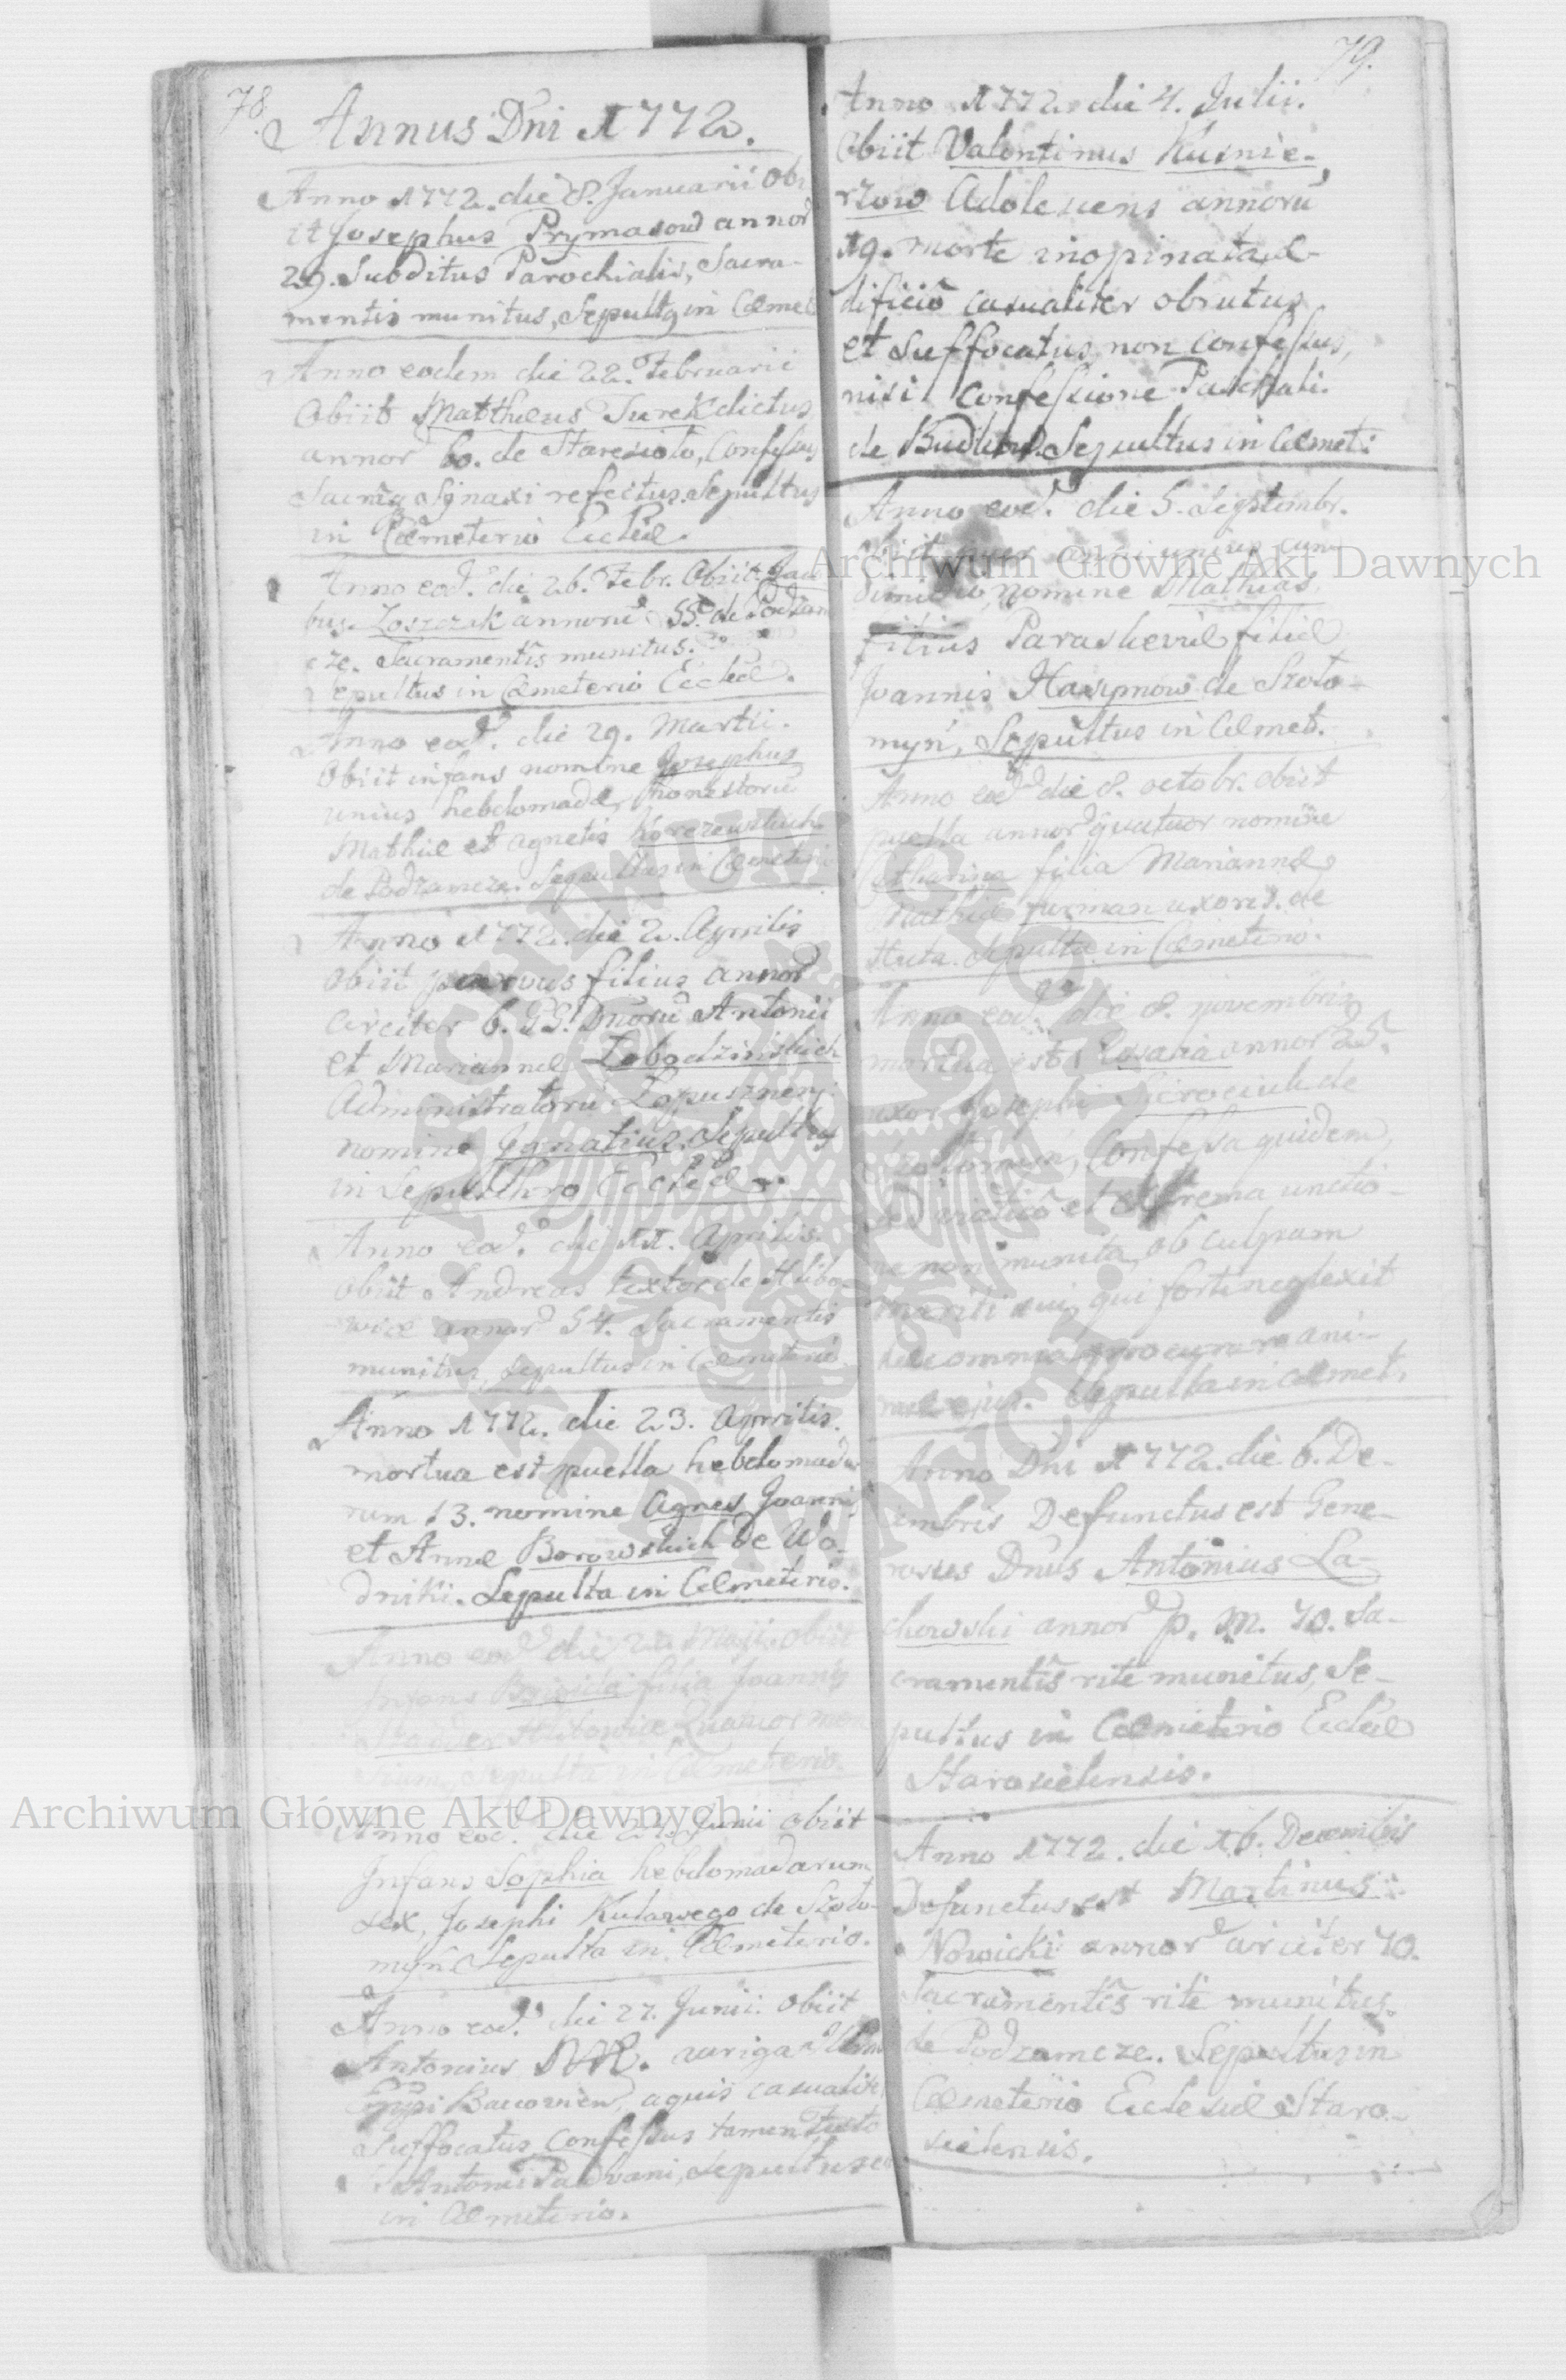 78.
Annus Dni 1772.
Anno 1772. die 8. Januarii Obi
it Josephus Prymasow annor
29. Subditus Parochialis, Sacra-
mentis munitus, Sepultg in Cæmet
Anno eodem die 22. Februarii
Obiit Matthæus Surek dictus
annor 60. de Staresioło, Confessus
Sacra Synaxi refectus. Sepultus
in Cæmeterio Eccliæ.
Anno eod. die 26. Febr. Obiit Jaco
bus Zoszczak annorū 55. de Podzam
cze. Sacramentis munitus.
Sepultus in Cæmeterio Eccliæ.
Anno eod. die 29. Martii.
Obiit infans nomine Josephus
unius hebdomadæ, honestorū
Mathiæ et Agnetis
de Podzamcze. Sepultus in Cæmeterio
Anno 1772. die 2. Aprilis
obiit parvus filius annor
circiter 6. GG. Dnorū Antonii
et Mariannæ Łobodzinskich
Administratorū
nomine Ignatius. Sepultus
in Sepulchro Eccliæ.
Anno eod. die 11. Aprilis.
obiit Andreas textor de Hlibo-
wice annor 54. Sacramentis
munitus, sepultus in Cæmeterio
Anno 1772. die 23. Aprilis.
mortua est puella hebdomada
rum 13. nomine Agnes Joannis
et Annæ Borowskich de Wo-
dniki. Sepulta in Cæmeterio.
Anno eod. die 22. Maji. obiit
Infans Brigida filia Joannis
quatuor men
sium, sepulta in Cæmeterio.
Anno eod. die Junii obiit
Infans Sophia hebdomadarum
sex, Josephi de Szoło-
myn. Sepulta in Cæmeterio.
Anno eod. die 27. Junii. Obiit
Antonius NN. auriga
aquis casualiter
Suffocatus, Confessus tamen
Antonii Padvani, sepultus
in Cæmeterio.
79.
Anno 1772. die 4. Julii.
Obiit Valentinus Kusnie-
rzow Adolescens annorū
19. morte inopinata æ-
dificio casualiter obrutus
et Suffocatus, non confessus,
nisi Confessione Paschali.
de Sepultus in Cæmet:
Anno eod. die 5. Septembr.
obiit puer anni unius cum
dimidio, nomine Mathias,
filius Parasheviæ filiæ
Joannis Hawrynow de Szoło-
myń, Sepultus in Cæmet.
Anno eod. die 8. octobr. obiit
puella annor quatuor nomine
Catharina filia Mariannæ
Mathiæ Furman uxoris. de
Huta. Sepulta in Cæmeterio.
Anno eod. die 8. novembris
mortua est Rosalia annor 25.
uxor Josephi de
Szołomyn, Confessa quidem,
sed viatico et extrema unctio-
ne non munita, ob culpam
mariti sui, qui forte neglexit
hæc omnia procurare ani-
mæ ejus. Sepulta in Cæmet.
Anno Dni 1772. die 6. De-
cembris Defunctus est Gene-
rosus Dnus Antonius La-
chowski annor p. m. 70. Sa-
cramentis rite munitus, Se-
pultus in Cæmeterio Eccliæ
Starosielensis.
Anno 1772. die 16. Decembris
Defunctus est Martinus
Nowicki annor circiter 70.
Sacramentis rite munitus.
de Podzamcze. Sepultus in
Cæmeterio Ecclesiæ Staro-
sielensis.
Archiwum Główne Akt Dawnych
Archiwum Główne Akt Dawnych
ARCHIWUM GŁÓWNE AKT DAWNYCH